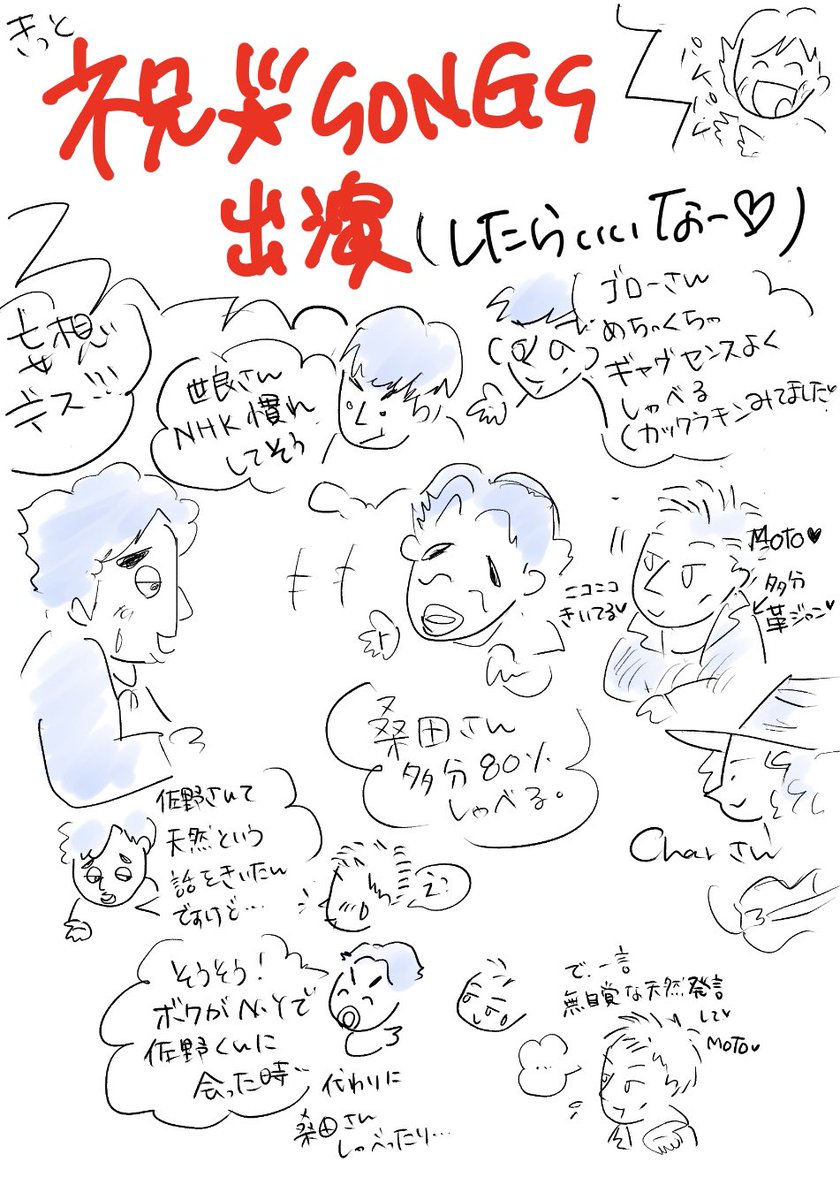 きっと
祝 SONGS
出演(したらいいなー♡)
妄想
デス!!!
世良さん
NHK慣れ
してそう
ゴローさん
めちゃくちゃ
ギャグセンスよく
しゃべる
(カックラキンみてました♡
MOTO♥
多分
革ジャン♥
ニコニコ
きいてる♥
桑田さん
多分80%
しゃべる。
Charさん
佐野さんて
天然という
話をきいたん
ですけど…
え?
そうそう!
ボクがN.Yで
佐野くんに
会った時…
代わりに
桑田さん
しゃべったり…
で、一言
無自覚な天然発言
して♥
MOTO♥
…